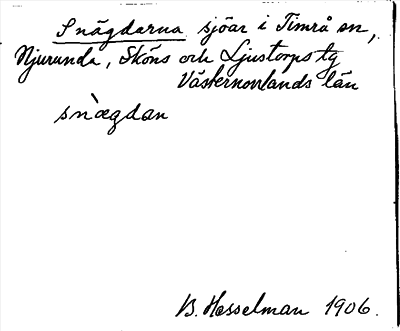 Snägdarna sjöar i Timrå sn,
Njurunda, Sköns och Ljustorps tg
Västernorrlands län
snægdan
B. Hesselman 1906.